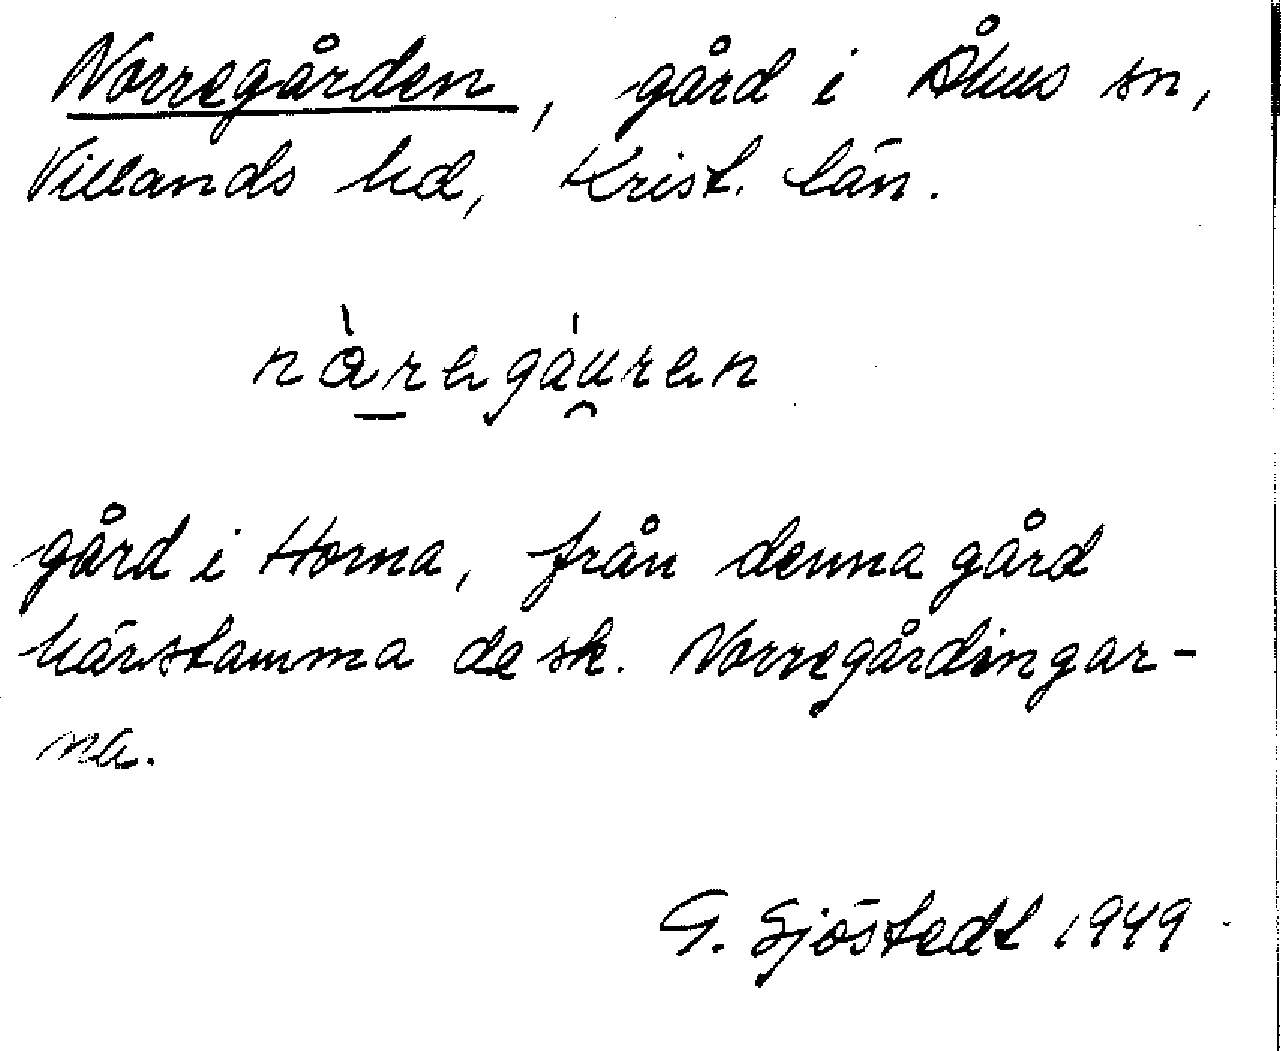 Norregården, gård i Åhus sn,
Villands hd, Krist. län.
nàregáuren
gård i Horna, från denna gård
härstamma de sk. Norregårdingar-
na.
G. Sjöstedt 1949